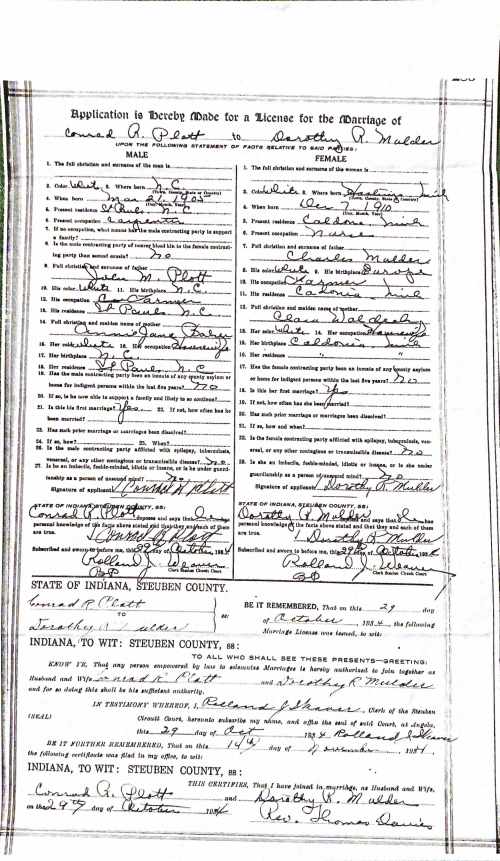 Application is Hereby Made for a License for the Marriage of
Conrad R. Plott to Dorothy R. Mulder
UPON THE FOLLOWING STATEMENT OF FACTS RELATIVE TO SAID PARTIES:
MALE
1. The full christian and surname of the man is
2. Color White 3. Where born N.C.
(Town, County, State or Country)
4. When born Mar 2 1905
5. Present residence St Pauls N.C.
6. Present occupation Carpenter
7. If no occupation, what means has the male contracting party to support
a family?
8. Is the male contracting party of nearer blood kin to the female contract-
ing party than second cousin? No
9. Full christian and surname of father
John M. Plott
10. His color White 11. His birthplace N.C.
12. His occupation Farmer
13. His residence St Pauls N.C.
14. Full christian and surname of mother
Jane
16. Her color White 16. Her occupation Housewife
17. Her birthplace N.C.
18. Her residence St Pauls N.C.
19. Has the male contracting party been an inmate of any county asylum
or home for indigent persons within the last five years? No
20. If so, is he now able to support a family and likely to so continue?
21. Is this his first marriage? Yes 22. If not, how often has he
been married?
23. Has such prior marriage or marriages been dissolved?
24. If so, how? 25. When?
26. Is the male contracting party afflicted with epilepsy, tuberculosis,
venereal, or any other contagious or transmissible disease? no
27. Is he an imbecile, feeble-minded, idiotic or insane, or is he under guard-
ianship as a person of unsound mind? no
Signature of applicant Conrad R. Plott
STATE OF INDIANA, STEUBEN COUNTY, ss:
Conrad R. Plott deposes and says that he has
personal knowledge of the facts above stated and that they and each of them
are true.
Conrad R. Plott
Subscribed and sworn to before me, this 29th day of October, 1934
Rolland J. Weaver
Clerk Steuben Circuit Court
FEMALE
1. The full christian and surname of the woman is
2. Color White 3. Where born Hastings Mich
(Town, County, State or Country)
4. When born Dec 7 1910
(Day, Month, Year)
5. Present residence Caldonia, Mich
6. Present occupation Nurse
7. Full christian and surname of father
Charles Mulder
8. His color White 9. His birthplace Europe
10. His occupation Farmer
11. His residence Caldonia Mich
12. Full christian and maiden name of mother
Clara
13. Her color White 14. Her occupation Housewife
15. Her birthplace Caldonia Mich
16. Her residence " "
17. Has the female contracting party been an inmate of any county asylum
or home for indigent persons within the last five years? No
18. Is this her first marriage? Yes
19. If not, how often has she been married?
20. Has such prior marriage or marriages been dissolved?
21. If so, how and when?
22. Is the female contracting party afflicted with epilepsy, tuberculosis, ven-
ereal, or any other contagious or transmissible disease? No
23. Is she an imbecile, feeble-minded, idiotic or insane, or is she under
guardianship as a person of unsound mind? No
Signature of applicant Dorothy R. Mulder
STATE OF INDIANA, STEUBEN COUNTY, ss:
Dorothy R. Mulder deposes and says that she has
personal knowledge of the facts above stated and that they and each of them
are true.
Dorothy R. Mulder
Subscribed and sworn to before me, this 29th day of October, 1934
Rolland J. Weaver
Clerk Steuben Circuit Court
STATE OF INDIANA, STEUBEN COUNTY.
Conrad R Plott
TO
Dorothy R Mulder
ss:
BE IT REMEMBERED, That on this 29 day
of October, 1934, the following
Marriage License was issued, to wit:
INDIANA, TO WIT: STEUBEN COUNTY, ss:
TO ALL WHO SHALL SEE THESE PRESENTS—GREETING:
KNOW YE, That any person empowered by law to solemnize Marriages is hereby authorized to join together as
Husband and Wife Conrad R Plott and Dorothy R Mulder
and for so doing this shall be his sufficient authority.
IN TESTIMONY WHEREOF, I, Rolland J Weaver, Clerk of the Steuben
(SEAL) Circuit Court, hereunto subscribe my name, and affix the seal of said Court, at Angola,
this 29 day of Oct 1934 Rolland J Weaver
BE IT FURTHER REMEMBERED, That on this 14th day of November, 1934,
the following certificate was filed in my office, to wit:
INDIANA, TO WIT: STEUBEN COUNTY, ss:
THIS CERTIFIES, That I have joined in marriage, as Husband and Wife,
Conrad R. Plott and Dorothy R. Mulder
on the 29th day of October 1934 Rev. Thomas Davies